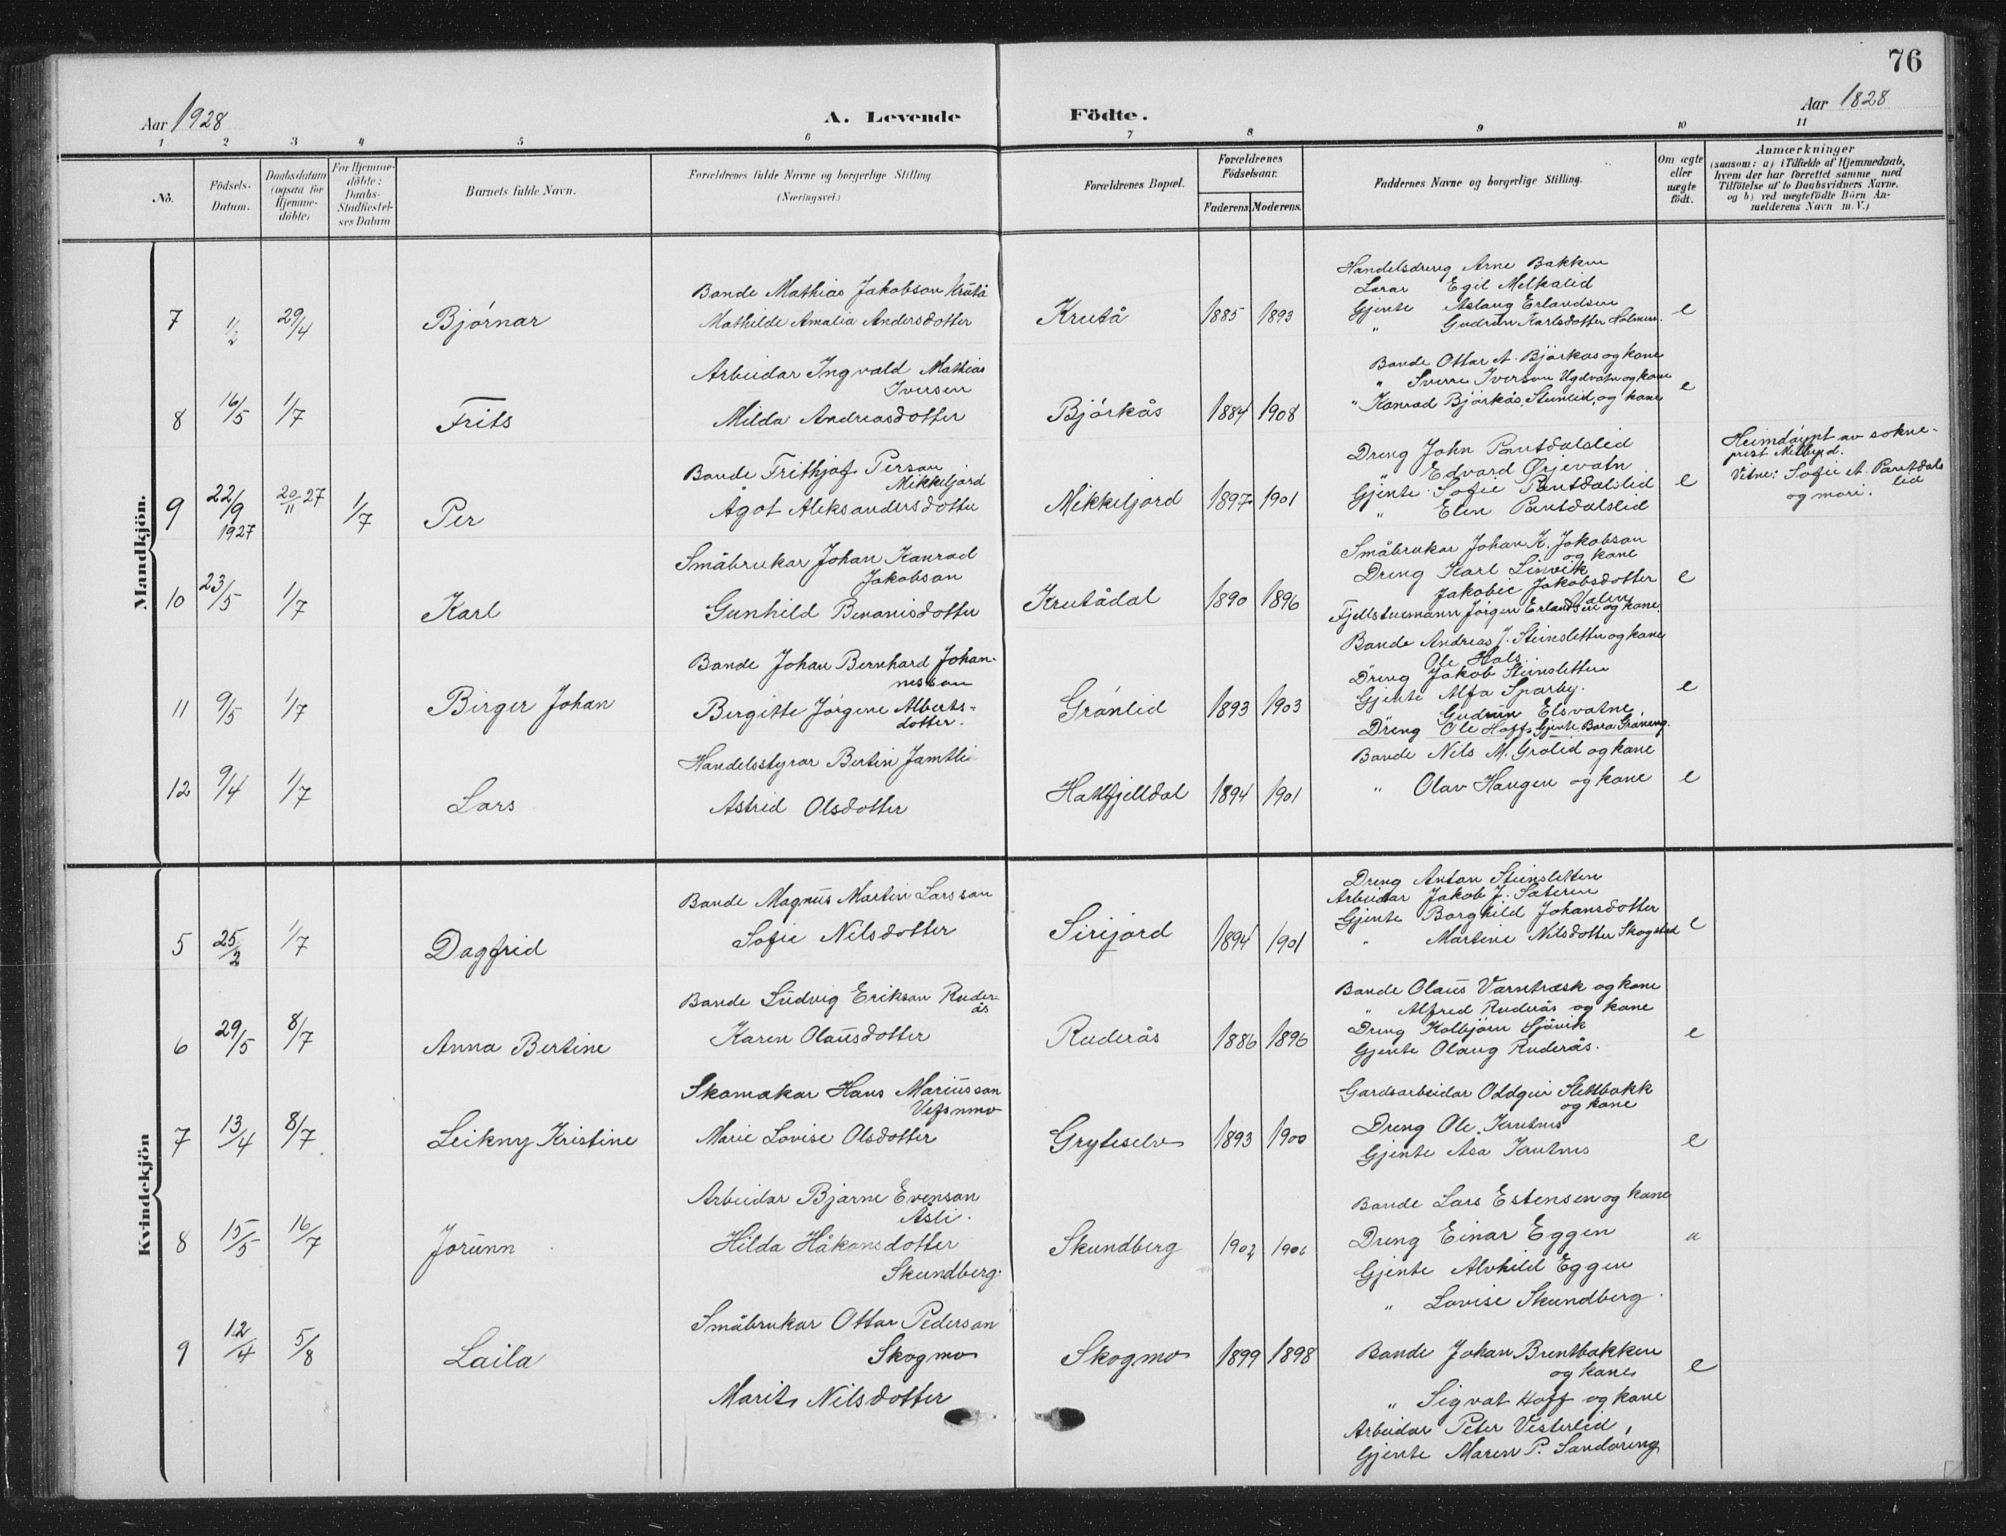 76
Aar 1928
A. Levende Födte.
Aar 1828
1 2 3 4 5 6 7 8 9 10 11
No.
Födsels-
Datum.
Daabsdatum
(ogsaa for
Hjemme-
döbte)
For Hjemme-
döbte:
Daabs-
Stadfæstel-
ses Datum
Barnets fulde Navn.
Forældrenes fulde Navne og borgerlige Stilling
(Næringsvei)
Forældrenes Bopæl.
Forældrenes
Födselsaar.
Faderens Moderens.
Faddernes Navne og borgerlige Stilling.
Om ægte
eller
uægte
födt.
Anmærkninger
(saasom: a) i Tilfælde af Hjemmedaab,
hvem der har forrettet samme med
Tilföielse af to Daabsvidners Navne.
og b) ved uægtefödte Börn An-
melderens Navn m. V.)
Mandkjön.
7 1/2 29/4 Bjørnar
Bonde Mathias Jakobson Krutå
Mathilde Amalia Andersdotter
Krutå 1885 1893
Handelsdreng Arne Bakken
Lærar Egil Melkalid
Gjente Aslaug Erlandsen
" Gudrun Karlsdotter Holmen.
e
8 16/5 1/7 Frits
Arbeidar Ingvald Mathias
Iversen
Milda Andreasdotter
Bjórkås 1884 1908
Bonde Ottar A. Björkås og kone
" Sverre Iverson Ugdvatn og kone
" Konrad Björkås, Stenlid, og kone
e
9 22/9 1927 20/11-27 1/7 Per
Bonde Frithjof Person
Mikkeljord
Ågot Aleksandersdotter
Mikkeljord 1897 1901
Dreng John Pantdalslid
" Edvard Ørjevatn
Gjente Sofie Pantdalslid
" Elen Pantdalslid
e
Heimdöypt av sokne-
prest Melbyd.
Vitne: Sofie A. Pantdals
lid
og mori.
10 23/5 1/7 Karl
Småbrukar Johan Konrad
Jakobson
Gunhild Benonisdotter
Krutådal 1890 1896
Småbrukar Johan K. Jakobson
og kone
Dreng Karl Linvik
Jakobie Jakobsdotter
Fjellstuemann Jörgen Erlandsen og kone.
e
11 9/5 1/7 Birger Johan
Bonde Johan Bernhard Johan-
nesson
Birgitte Jørgine Alberts-
dotter.
Grønlid 1893 1903
Bonde Andreas J. Steinsletten og kone
Ole Hols
Dreng Jakob Steinsletten
Gjente Alfa Sparby.
Gudrun Elsvatne
Dreng Ole Hoff, Gjente Bora Gröneng.
e
12 9/4 1/7 Lars
Handelsstyrar Bertin Jamtli
Astrid Olsdotter
Hatfjelldal 1894 1901
Bonde Nils M. Grölid og kone
" Olav Haugen og kone
e
Kvindekjön
5 25/2 1/7 Dagfrid
Bonde Magnus Martin Larsson
Sofie Nilsdotter
Sirijord 1894 1901
Dreng Anton Steinsletten
Arbeidar Jakob J. Sæteren
Gjente Borghild Johansdotter
" Martine Nilsdotter Skogstad
e
6 29/5 8/7 Anna Bertine
Bonde Ludvig Erikson Ruder-
ås
Karen Olausdotter
Ruderås 1886 1896
Bonde Olaus Varntræsk og kone
" Alfred Ruderås og kone
Dreng Kolbjørn Sjåvik
Gjente Olaug Ruderås.
e
7 13/4 8/7. Leikny Kristine
Skomakar Hans Mariusson
Vefsnmo
Marie Lovise Olsdotter
Gryteselv 1893 1900
Gardsarbeidar Oddgeir Slettbakk
og kone
Dreng Ole Krutnes
Gjente Åsa Krutnes
e
8 15/5 16/7 Jorunn
Arbeidar Bjarne Evenson
Åsli.
Hilda Håkonsdotter
Skundberg.
Skundberg 1902 1906
Bonde Lars Estensen og kone
Dreng Einar Eggen
Gjente Alvhild Eggen
" Lovise Skundberg.
u
9 12/4 5/8 Laila
Småbrukar Ottar Pederson
Skogmo
Marit Nilsdotter
Skogmo 1899 1898
Bonde Johan Brentbakken
og kone
" Sigvat Hoff og kone
Arbeidar Peter Vesterlid
Gjente Maren P. Sandöreng
e